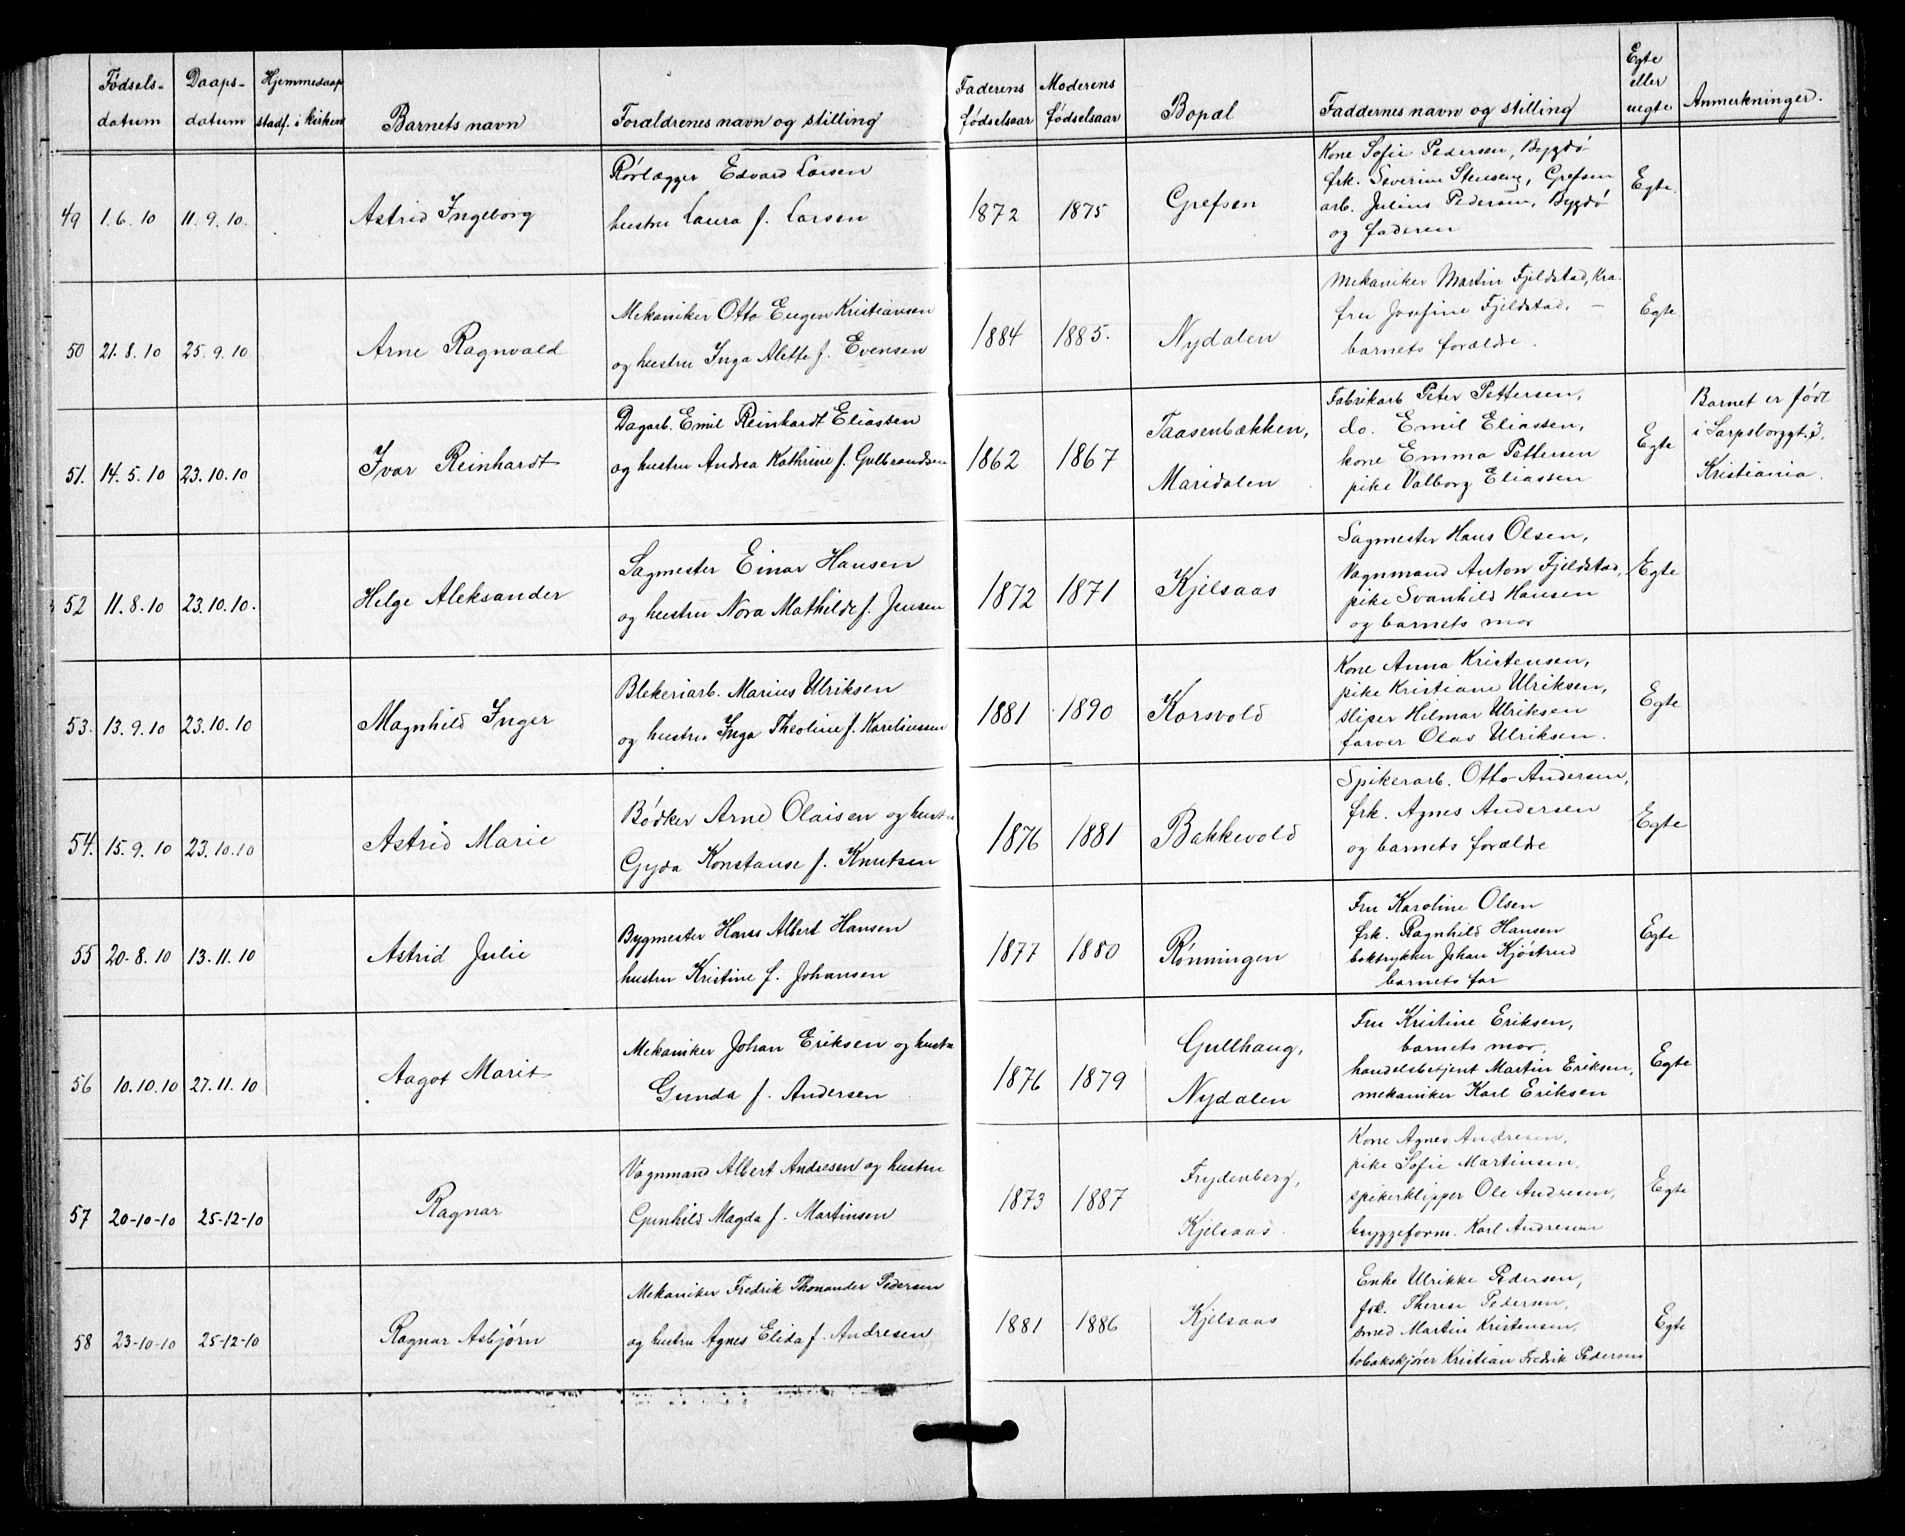 Fødsels-datum | Daaps-datum | Hjemmedaap stadf. i kirken | Barnets navn | Forældrenes navn og stilling | Faderens fødselsaar | Moderens fødselsaar | Bopæl | Faddernes navn og stilling | Egte eller uegte | Anmerkninger.
49 1.6.10 11.9.10. Astrid Ingeborg
Rørlægger Edvard Larsen
hustru Laura f. Larsen
1872 1875 Grefsen
Kone Sofie Pedersen, Bygdø
frk. Severine Stenseng, Grefsen
arb. Julius Pedersen, Bygdø
og faderen
Egte
50 21.8.10 25.9.10 Arne Ragnvald
Mekaniker Otto Eugen Kristiansen
og hustru Inga Alette f. Evensen
1884 1885. Nydalen
Mekaniker Martin Fjeldstad, Kra.
fru Josefine Fjeldstad. —
barnets forældre.
Egte
51. 14.5.10 23.10.10 Ivar Reinhardt
Dagarb. Emil Reinhardt Eliassen
og hustru Andrea Kathrine f. Gulbrandsen
1862 1867
Taasenbækken,
Maridalen
Fabrikarb Peter Pettersen,
do. Emil Eliassen,
kone Emma Pettersen
pike Valborg Eliassen
Egte
Barnet er født
i Sarpsborggt. 3,
Kristiania.
52 11.8.10 23.10.10. Helge Aleksander
Sagmester Einar Hansen
og hustru Nora Mathilde f. Jensen
1872 1871 Kjelsaas
Sagmester Hans Olsen,
Vognmand Anton Fjeldstad,
pike Svanhild Hansen
og barnets mor
Egte
53. 13.9.10 23.10.10 Magnhild Inger
Blekeriarb. Marius Ulriksen
og hustru Inga Theoline f. Kareliussen
1881 1890 Korsvold
Kone Anna Kristensen,
pike Kristiane Ulriksen,
sliper Hilmar Ulriksen
farver Olav Ulriksen.
Egte
54. 15.9.10 23.10.10 Astrid Marie
Bødker Arne Olaisen og hustru
Gyda Konstanse f. Knutsen
1876 1881 Bakkevold
Spikerarb. Otto Andersen,
frk. Agnes Andersen
og barnets forældre
Egte
55 20-8.10 13.11.10 Astrid Julie
Bygmester Hans Albert Hansen
hustru Kristine f. Johansen
1877 1880 Rønningen
Fru Karoline Olsen
frk. Ragnhild Hansen
boktrykker Johan Kjøstrud
barnets far
Egte
56 10.10.10 27.11.10 Aagot Marit
Mekaniker Johan Eriksen og hustru
Gunda f. Andersen
1876 1879
Gullhaug,
Nydalen
Fru Kristine Eriksen,
barnets mor,
handelsbetjent Martin Eriksen,
mekaniker Karl Eriksen
Egte
57 20-10-10 25-12-10 Ragnar
Vognmand Albert Andresen og hustru
Gunhild Magda f. Martinsen
1873 1887
Frydenberg,
Kjelsaas.
Kone Agnes Andresen,
pike Sofie Martinsen,
spikerklipper Ole Andresen,
bryggeform. Karl Andresen
Egte
58 23-10-10 25-12-10 Ragnar Asbjørn
Mekaniker Fredrik Thonander Pedersen
og hustru Agnes Elida f. Andresen
1881 1886 Kjelsaas
Enke Ulrikke Pedersen,
frk. Therese Pedersen,
smed Martin Kristensen,
tobakskjører Kristian Fredrik Pedersen
Egte